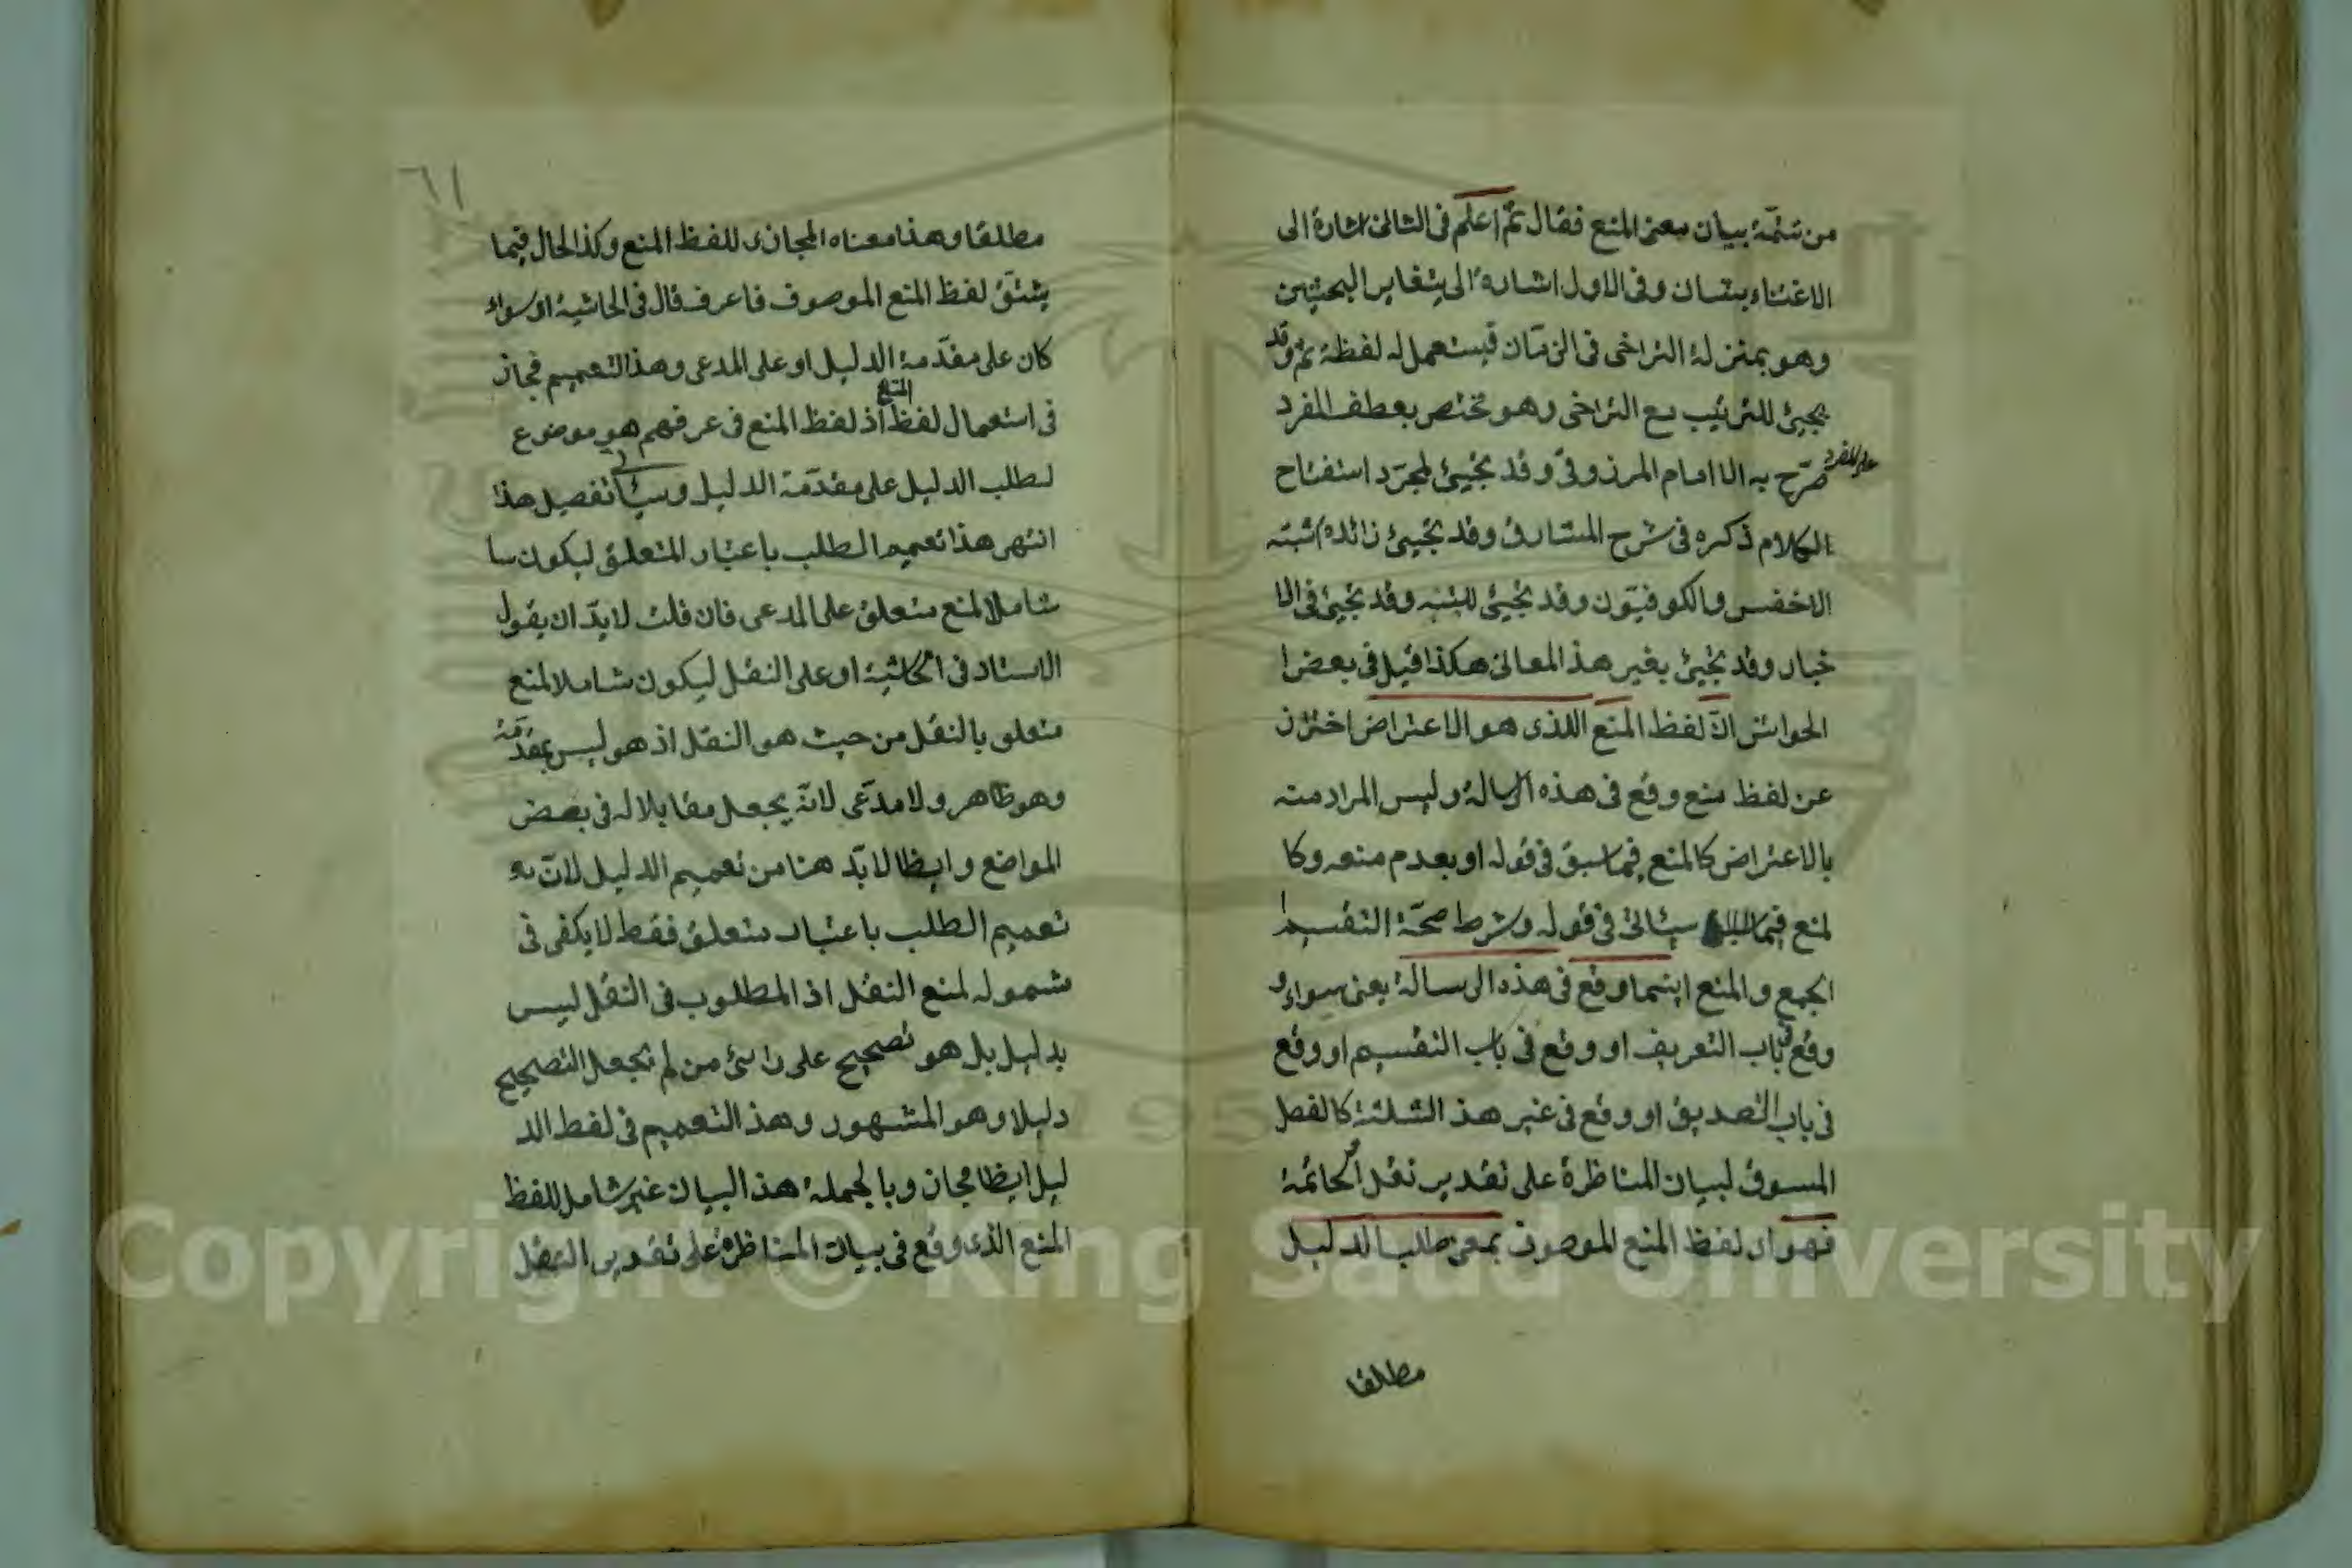 من تتمّة بيان معنى المنع فقال ثمّ اعلم فى الثانى اشارة الى
الاغتناء بشان وفى الاول اشارة الى يتغاير البحثين
وهو بمنزلة التراخى فى الزمان فيستعمل له لفظة ثم وقد
يجيئ للترتيب مع التراخى وهو مختص بعطف المفرد
على المفرد صرّح به الا امام المرزوقىّ وقد يجيئ لمجرّد استفتاح
الكلام ذكره فى شرح المشارق وقد يجيئ زائدة اثبته
الاخفس والكوفيّون وقد يجيئ للتنبه وقد يجيئ فى الا
خبار وقد يجيئ بغير هذ المعانى هكذا قيل فى بعض ا
الحواشى الآ لفظ المنع اللذى هو الاعتراض احتزز
عن لفظ منع وقع فى هذه الرسالة وليس المراد منه
بالاعتراض كالمنع فيما سبق فى قوله او بعدم منعه وكا
لمنع فيما سيئاتى فى قوله وشرط صحّة التقسيم ا
الجمع والمنع اينما وقع فى هذه الرسالة يعنى سواء و
وقع فى باب التعريف او وقع فى باب التقسيم او وقع
فى باب التصديق او وقع فى غير هذ الثلثة كالفصل
المسوق لبيان المناظرة على تقدير نقل الخاتمة
فهو اى لفظ المنع الموصوف بمعنى طلب الدليل
مطلقا
٦١
مطلقا وهذا معناه المجازى للفظ المنع وكذ الحال فيما
يشتقّ لفظ المنع الموصوف فاعرف قال فى الحاشية اى سواء
كان على مقدّمة الدليل او على المدعى وهذا التعميم مجاز
فى استعمال لفظ المنع اذ لفظ المنع فى عرفهم هو موضوع
لطلب الدليل على مقدّمة الدليل وسيئاتى تفصيل هذا
انتهى هذا تعميم الطلب باعتبار المتعلق ليكون سا
شاملا لمنع متعلق على المدعى فان قلت لا بدّ ان يقول
الاستاد فى الحاشية او على النقل ليكون شاملا لمنع
متعلق بالنقل من حيث هو النقل اذ هو ليس بمقدّمة
وهو ظاهر ولا مدّعى لانّه يجعل مقابلا له فى بعض
المواضع وايظا لا بدّ هنا من تعميم الدليل لانّ به
تعميم الطلب باعتبار متعلق فقط لا يكفى فى
شموله لمنع النقل اذ المطلوب فى النقل ليس
بدليل بل هو تصحيح على رائى من لم يجعل التصحيح
دليلا وهو المشهور وهذ التعميم فى لفظ الد
ليل ايظا مجاز وبالجملة هذ البيان غير شامل للفظ
المنع الذى وقع فى بيان المناظرة على تقدير النقل
Copyright © King Saud University